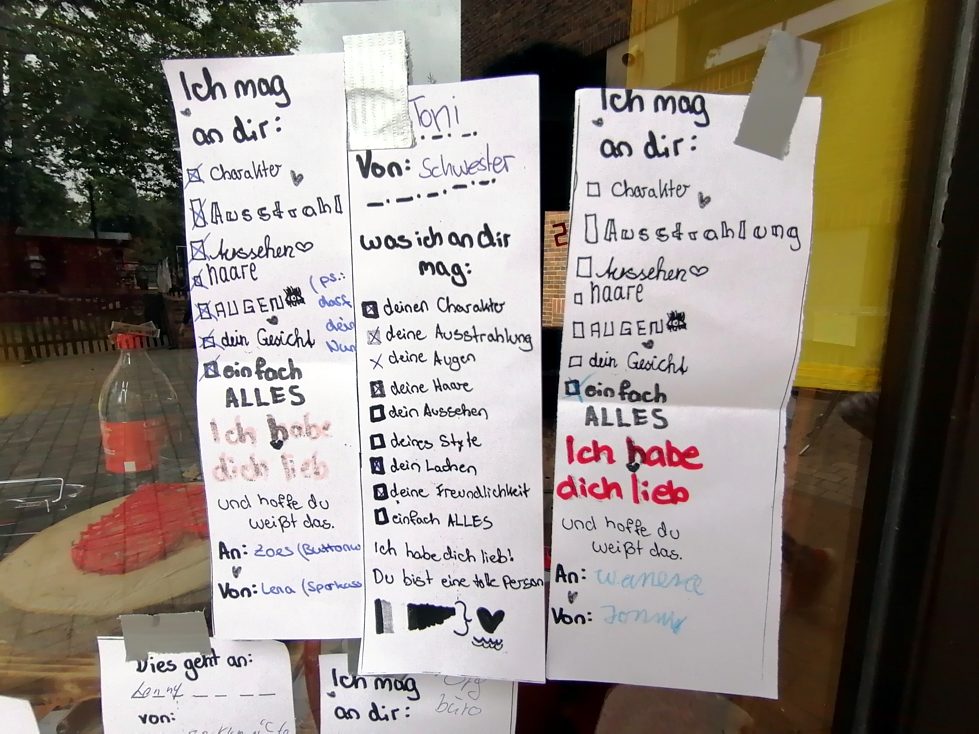 Ich mag
an dir:
Charakter
Ausstrahl
Aussehen
haare
AUGEN
dein Gesicht
einfach
ALLES
Ich habe
dich lieb
und hoffe du
weißt das.
An: Zoes
Von: Lena
(ps.:
Toni
Von: Schwester
was ich an dir
mag:
deinen Charakter
deine Ausstrahlung
deine Augen
deine Haare
dein Aussehen
deines Style
dein Lachen
deine Freundlichkeit
einfach ALLES
Ich habe dich lieb!
Du bist eine tolle Person
Ich mag
an dir:
Charakter
Ausstrahlung
Aussehen
haare
AUGEN
dein Gesicht
einfach
ALLES
Ich habe
dich lieb
und hoffe du
weißt das.
An:
Von: Jonny
Dies geht an:
von:
Ich mag
an dir:
büro
2